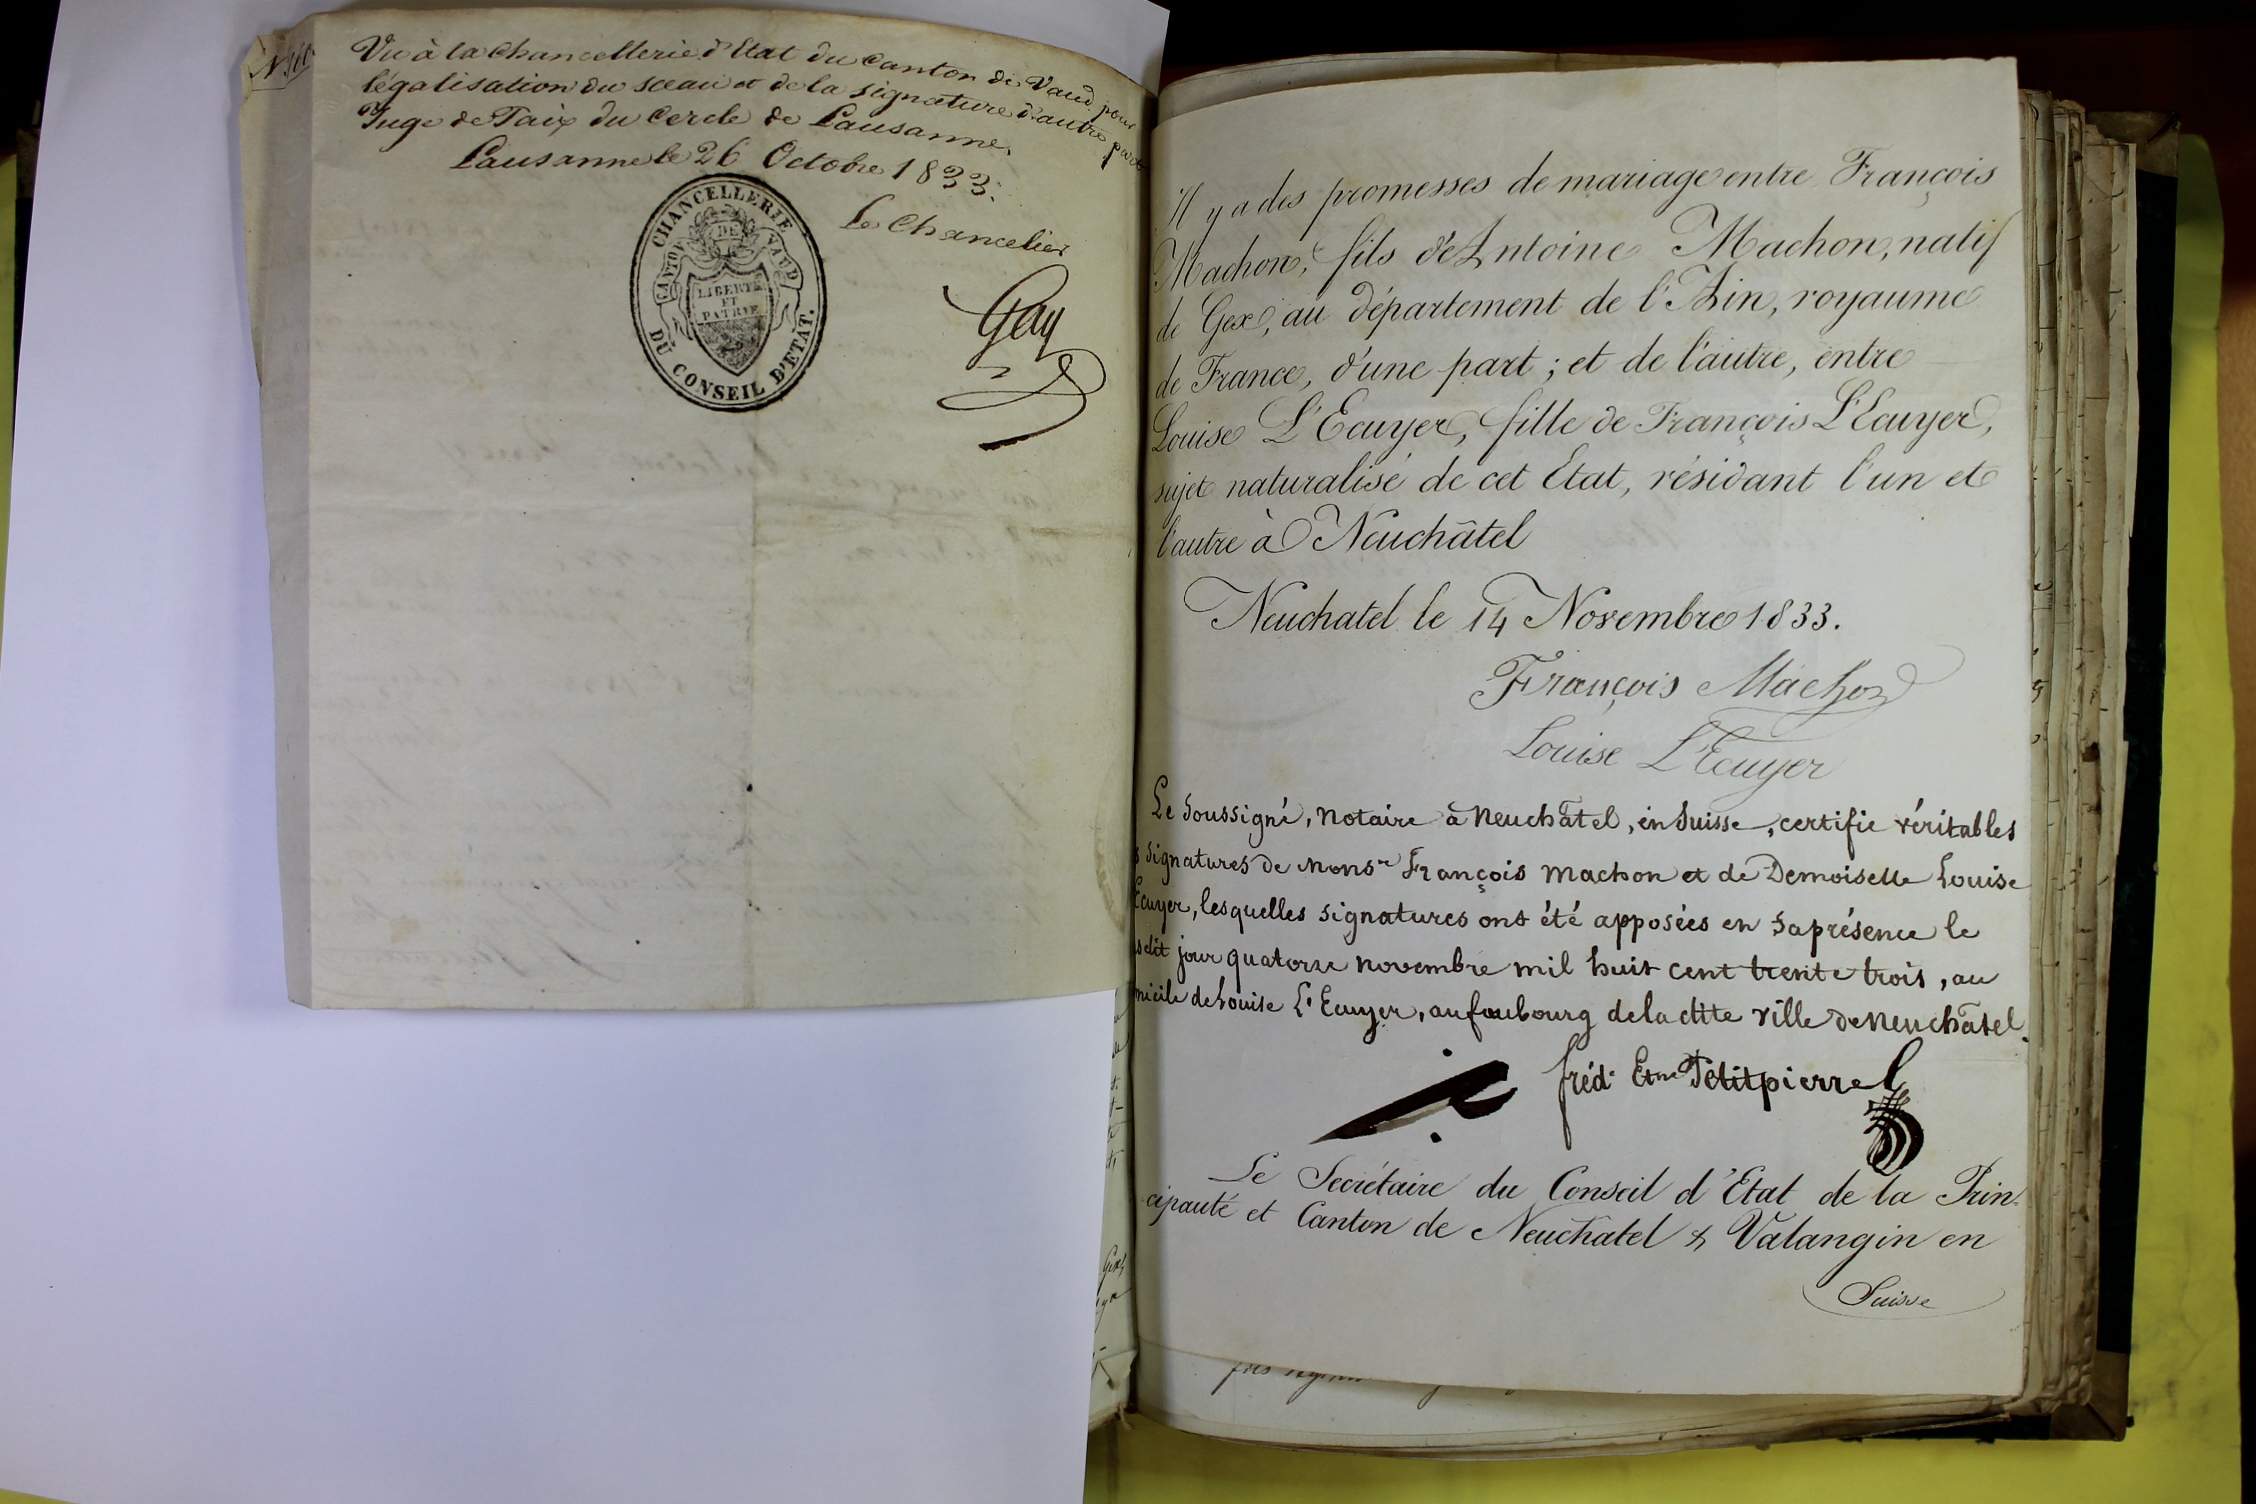 Vu à la Chancellerie d'Etat du Canton de Vaud pour
légalisation du sceau et de la signature d'autre part
Juge de Paix du Cercle de Lausanne.
Lausanne le 26 Octobre 1833.
Le Chancelier
Gay
CHANCELLERIE
DU CONSEIL D'ETAT.
CANTON DE VAUD
LIBERTÉ
ET
PATRIE
Il y a des promesses de mariage entre François
Machon, fils d'Antoine Machon, natif
de Gex, au département de l'Ain, royaume
de France, d'une part ; et de l'autre, entre
Louise L'Ecuyer, fille de François L'Ecuyer,
sujet naturalisé de cet Etat, résidant l'un et
l'autre à Neuchâtel
Neuchatel le 14 Novembre 1833.
François Machon
Louise L'Ecuyer
Le Soussigné, Notaire à Neuchâtel, en Suisse, certifie véritables
signatures de Monsr François Machon et de Demoiselle Louise
Ecuyer, lesquelles signatures ont été apposées en sa présence le
sdit jour quatorze novembre mil huit cent trente trois, au
micile de Louise L'Ecuyer, au faubourg de la dite ville de Neuchâtel.
fréd. Etne Petitpierre
Le Secrétaire du Conseil d'Etat de la Prin-
cipauté et Canton de Neuchâtel & Valangin en
Suisse